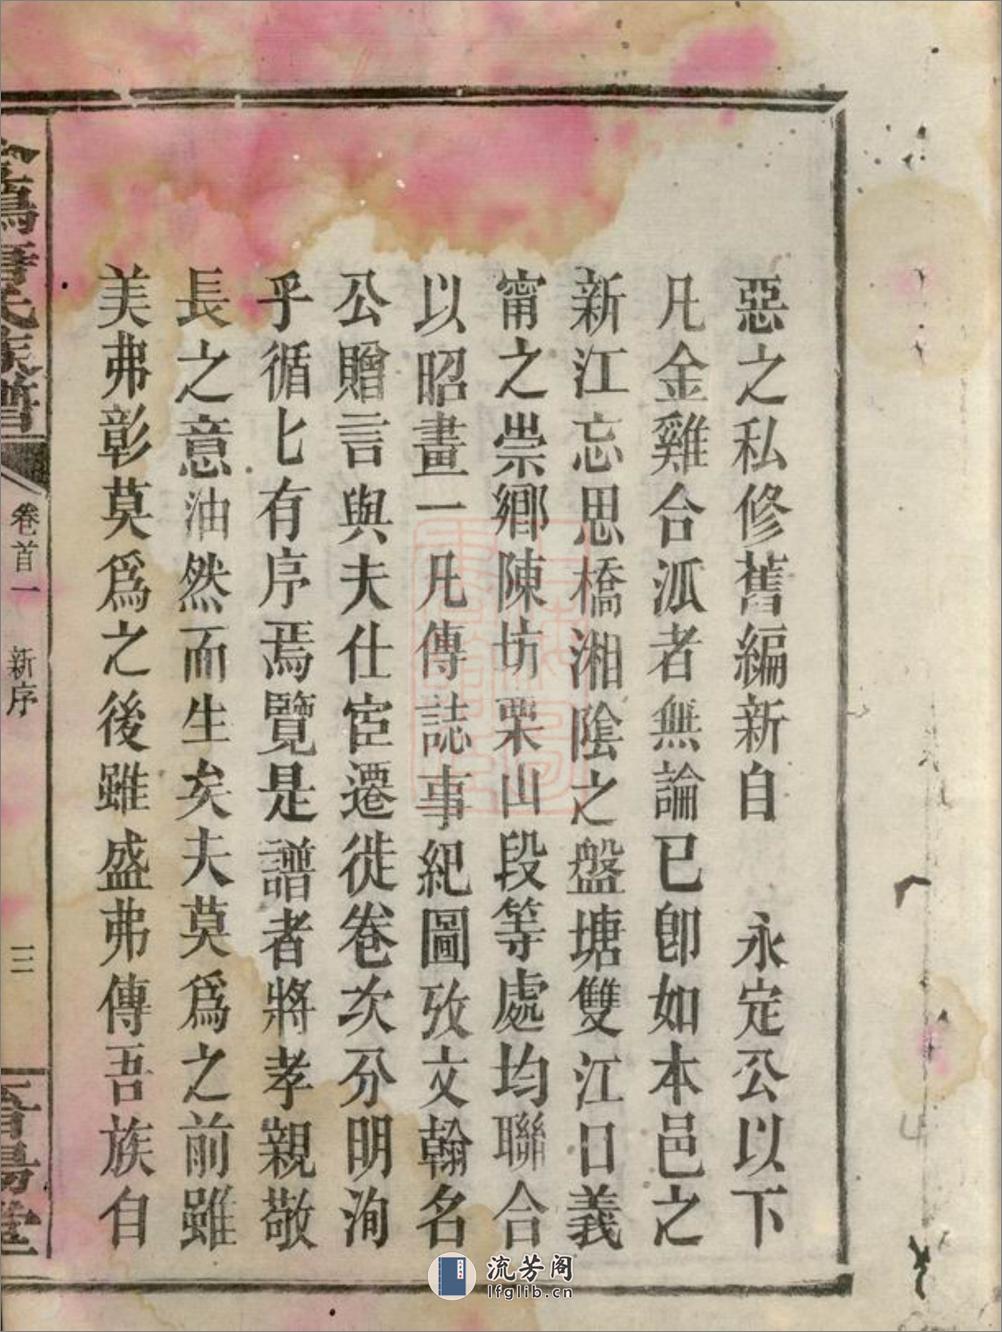 惡之私修舊編新自　永定公以下
凡金雞合派者無論已卽如本邑之
新江忘思橋湘陰之盤塘雙江口義
甯之崇鄉陳坊栗山段等處均聯合
以昭畫一凡傳誌事紀圖攷文翰名
公贈言與夫仕宦遷徙卷次分明洵
乎循匕有序焉覽是譜者將孝親敬
長之意油然而生矣夫莫爲之前雖
美弗彰莫爲之後雖盛弗傳吾族自
氏族譜
卷首一　新序
三
堂
流芳阁
lfglib.cn